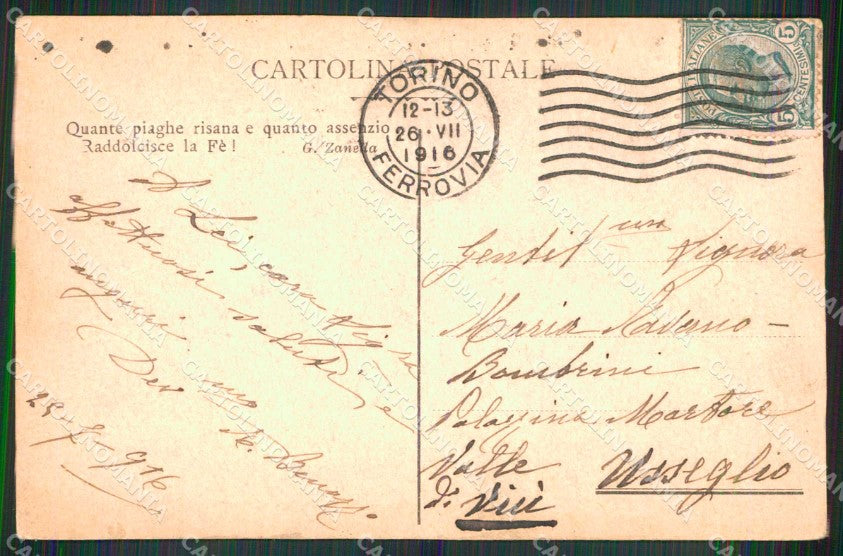 CARTOLINA POSTALE
TORINO
12-13
26·VII
1916
FERROVIA
POSTE ITALIANE
CENTESIMI
5
5
Quante piaghe risana e quanto assenzio
Raddolcisce la Fè! G. Zanella
A Lei, cara Sig.ra
affettuosi saluti e
auguri.
Dev
25-7-916
Gentil.ma Signora
Maria
Bombrini
Palazzina Martore
Valle Usseglio
di Viù
CARTOLINOMANIA